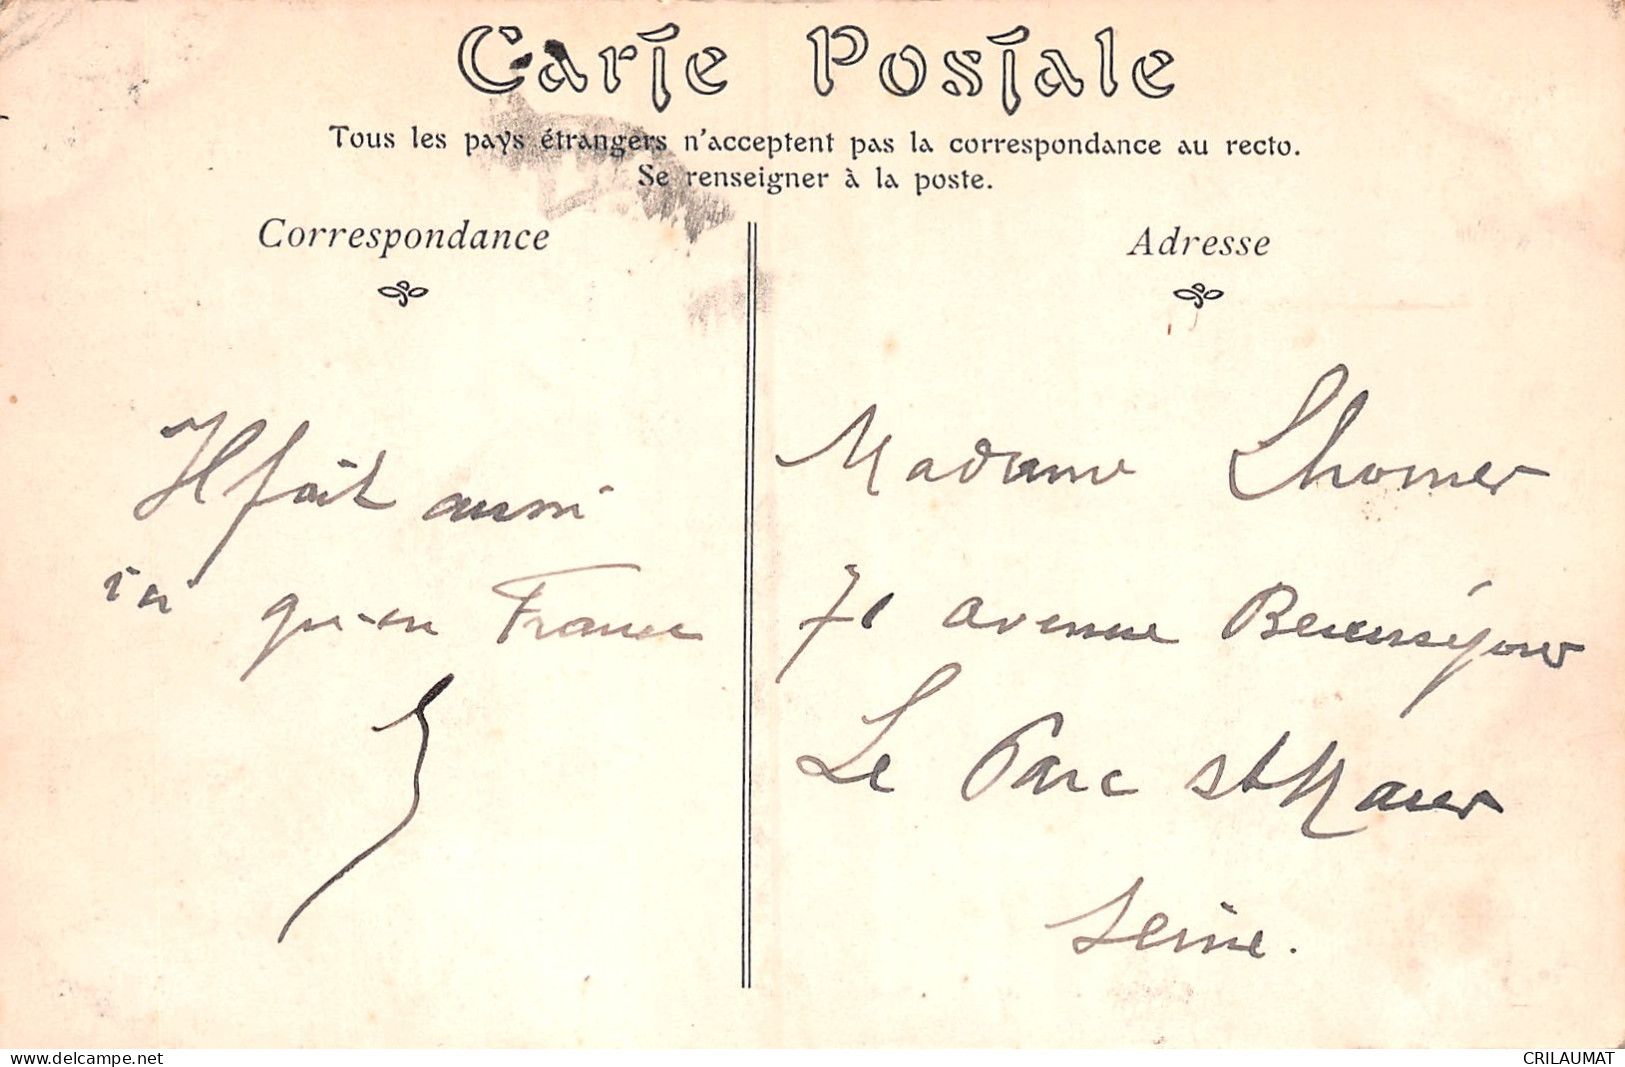 Carte Postale
Tous les pays étrangers n'acceptent pas la correspondance au recto.
Se renseigner à la poste.
Correspondance
Adresse
Il fait aussi
ici qu'en France
Madame Lhomer
71 avenue Beauséjour
Le Parc St Maur
Seine.
www.delcampe.net
CRILAUMAT